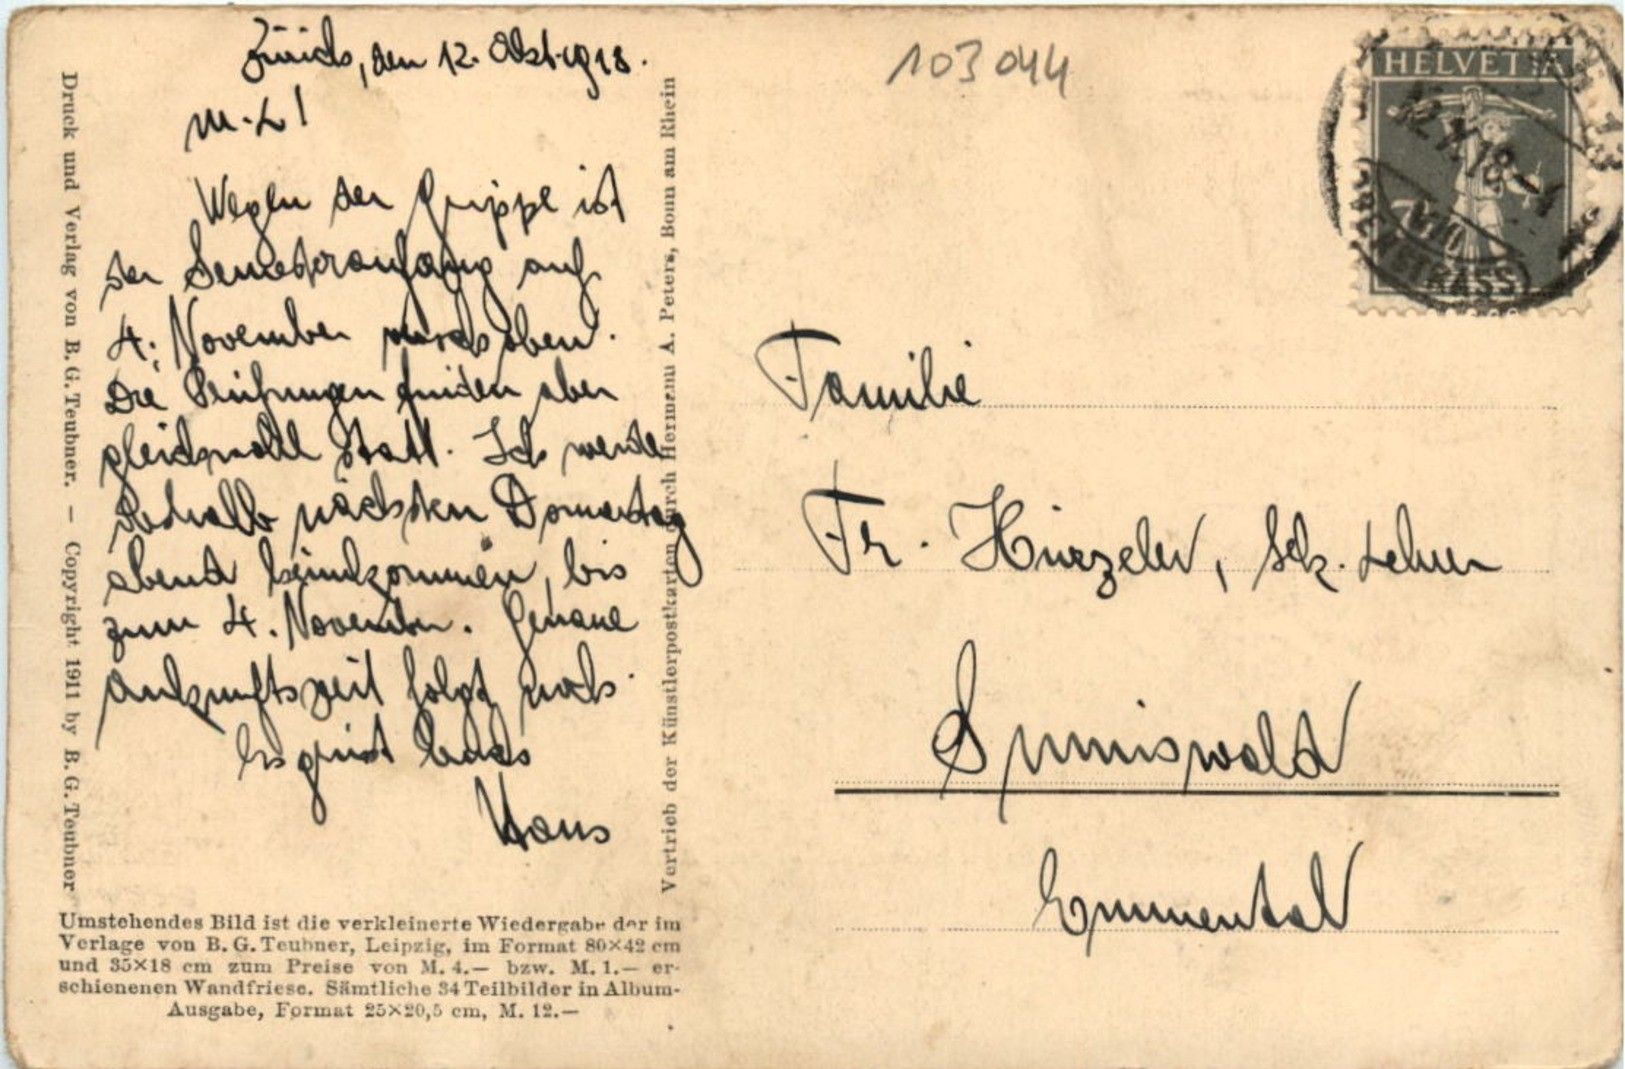 Zürich, den 12. Okt. 1918.
M. L!
Wegen der Grippe ist
der Semesteranfang auf
4. November verschoben.
Die Prüfungen finden aber
gleichwohl statt. Ich werde
deshalb nächsten Donnerstag
abend heimkommen, bis
zum 4. November. Genaue
Ankunftszeit folgt noch.
Es grüsst Euch
Hans
103044
HELVETIA
Familie
Fr. Hirzeler, Sek. Lehrer
Sumiswald
Emmental
Druck und Verlag von B. G. Teubner. – Copyright 1911 by B. G. Teubner
Vertrieb der Künstlerpostkarten durch Hermann A. Peters, Bonn am Rhein
Umstehendes Bild ist die verkleinerte Wiedergabe der im
Verlage von B. G. Teubner, Leipzig, im Format 80×42 cm
und 35×18 cm zum Preise von M. 4.— bzw. M. 1.— er-
schienenen Wandfriese. Sämtliche 34 Teilbilder in Album-
Ausgabe, Format 25×20,5 cm, M. 12.—